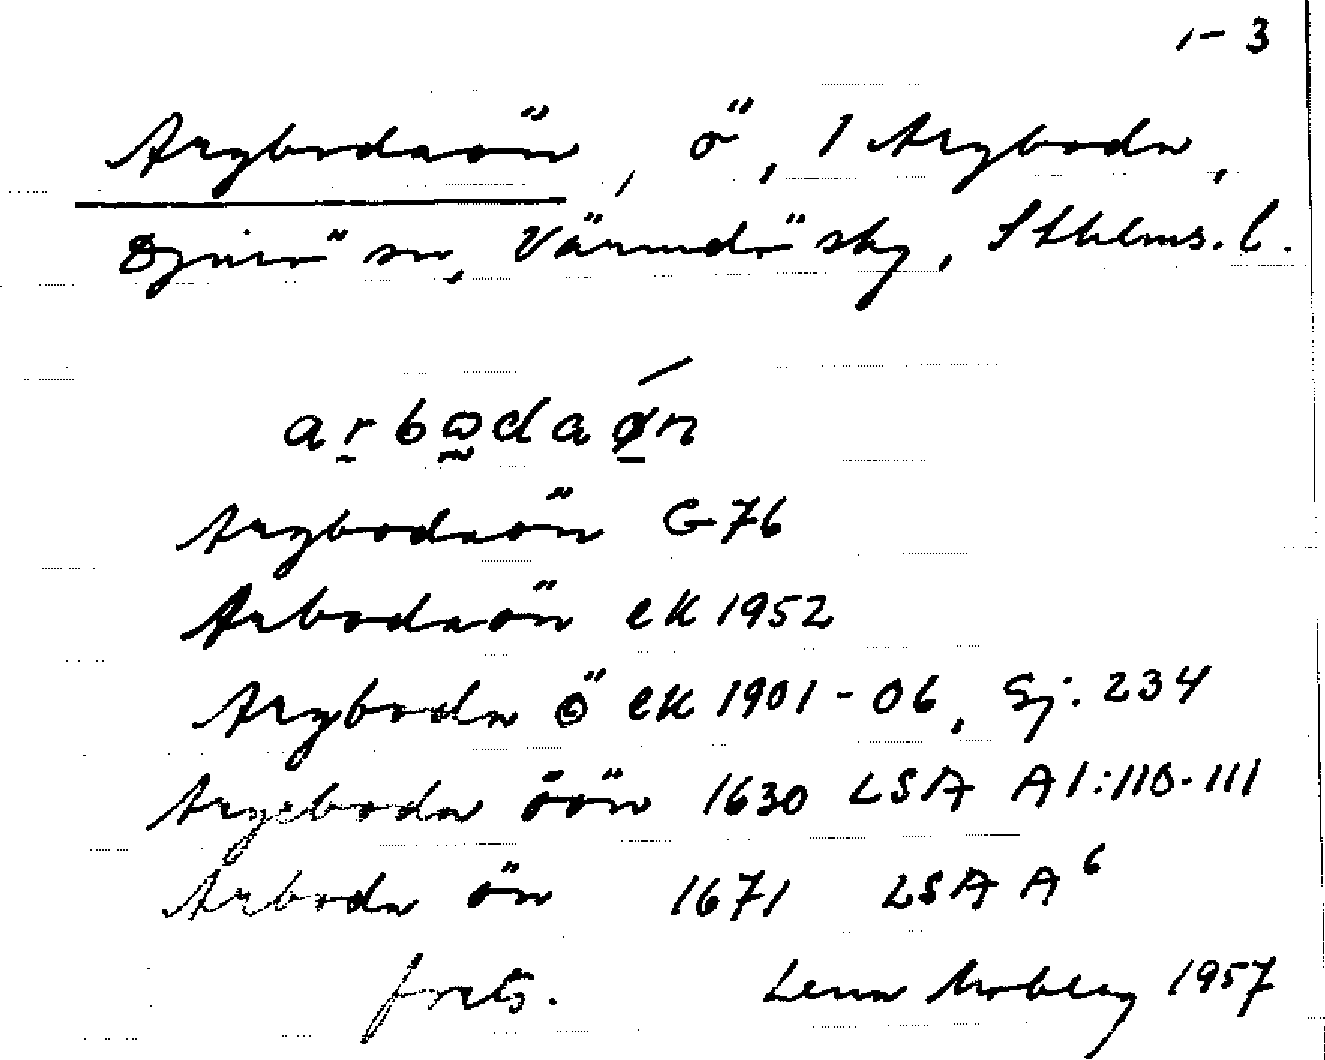 1-3
Argbodaön, ö, 1 Argboda,
Djurö sn, Värmdö skg, Sthlms. l.
arbodaøn
Argbodaön G 76
Arbodaön ek 1952
Argboda ö ek 1901-06, Sj: 234
Argeboda öön 1630 LSA A1:110-111
Arboda ön 1671 LSA A6
forts. Lena Moberg 1957